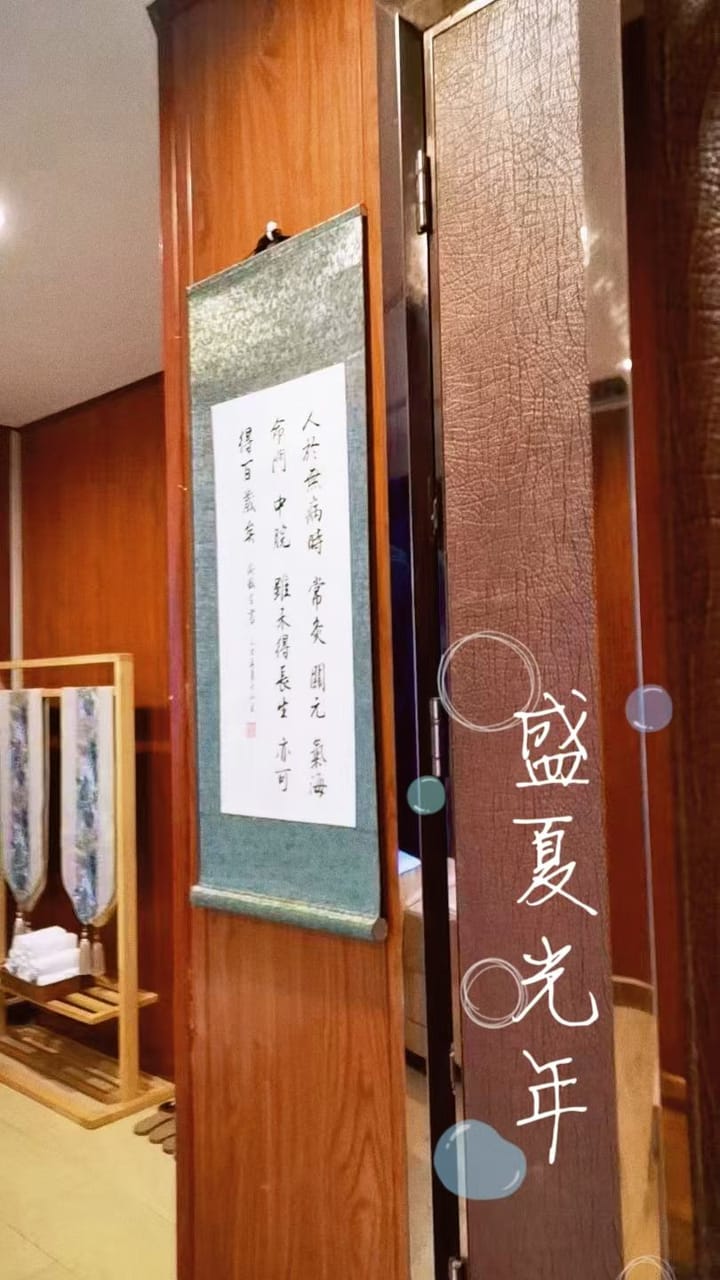 人於無病時 常灸 關元 氣海
命門 中脘 雖未得長生 亦可
得百歲矣
盛夏光年